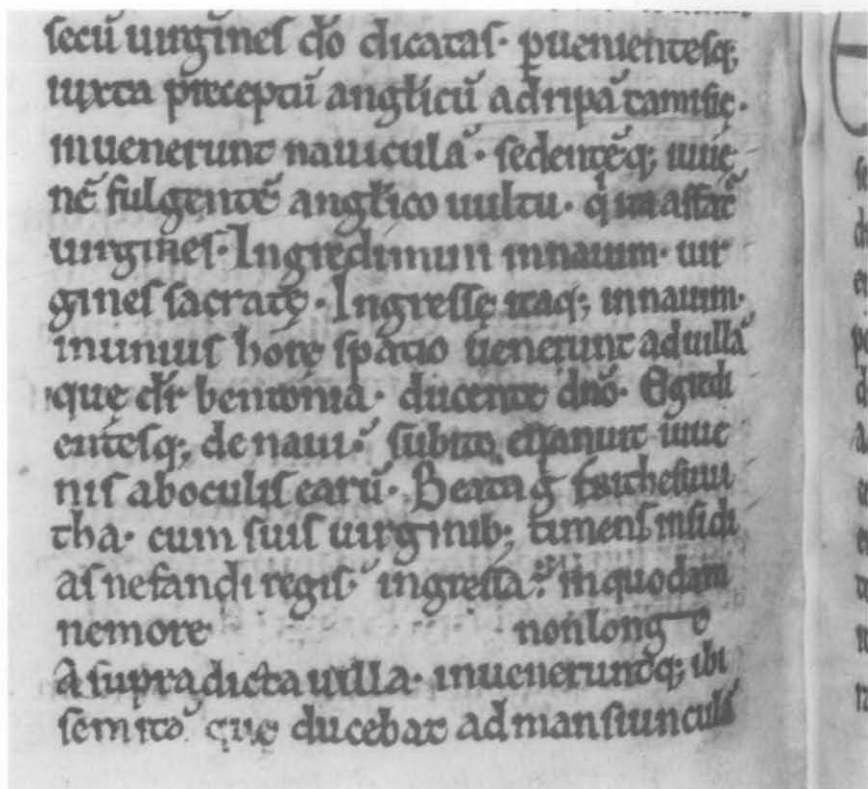 secū uirgines dō dicatas· ꝑuenientesq;
iuxta p̄ceptū angl̄icū adripā tamisię·
inuenerunt nauiculā· sedentēq; iuue
nē fulgentē angl̄ico uultu· q̇ affat᷒
uirgines· Ingredimini innauim· uir
gines sacratę· Ingressę itaq; innauim·
inunius horę spatio uenerunt aduillā
quę dr̄ bentonia· ducente dnō· Egredi
entesq; de naui· subito euanuit iuue
nis aboculis earū· Beata g̊ frithesuui
tha· cum suis uirginib; timens insidi
as nefandi regis· ingressa ÷ inquodam
nemore nonlong e
A supradicta uilla· inueneruntq; ibi
semitā que ducebat admansiunculā